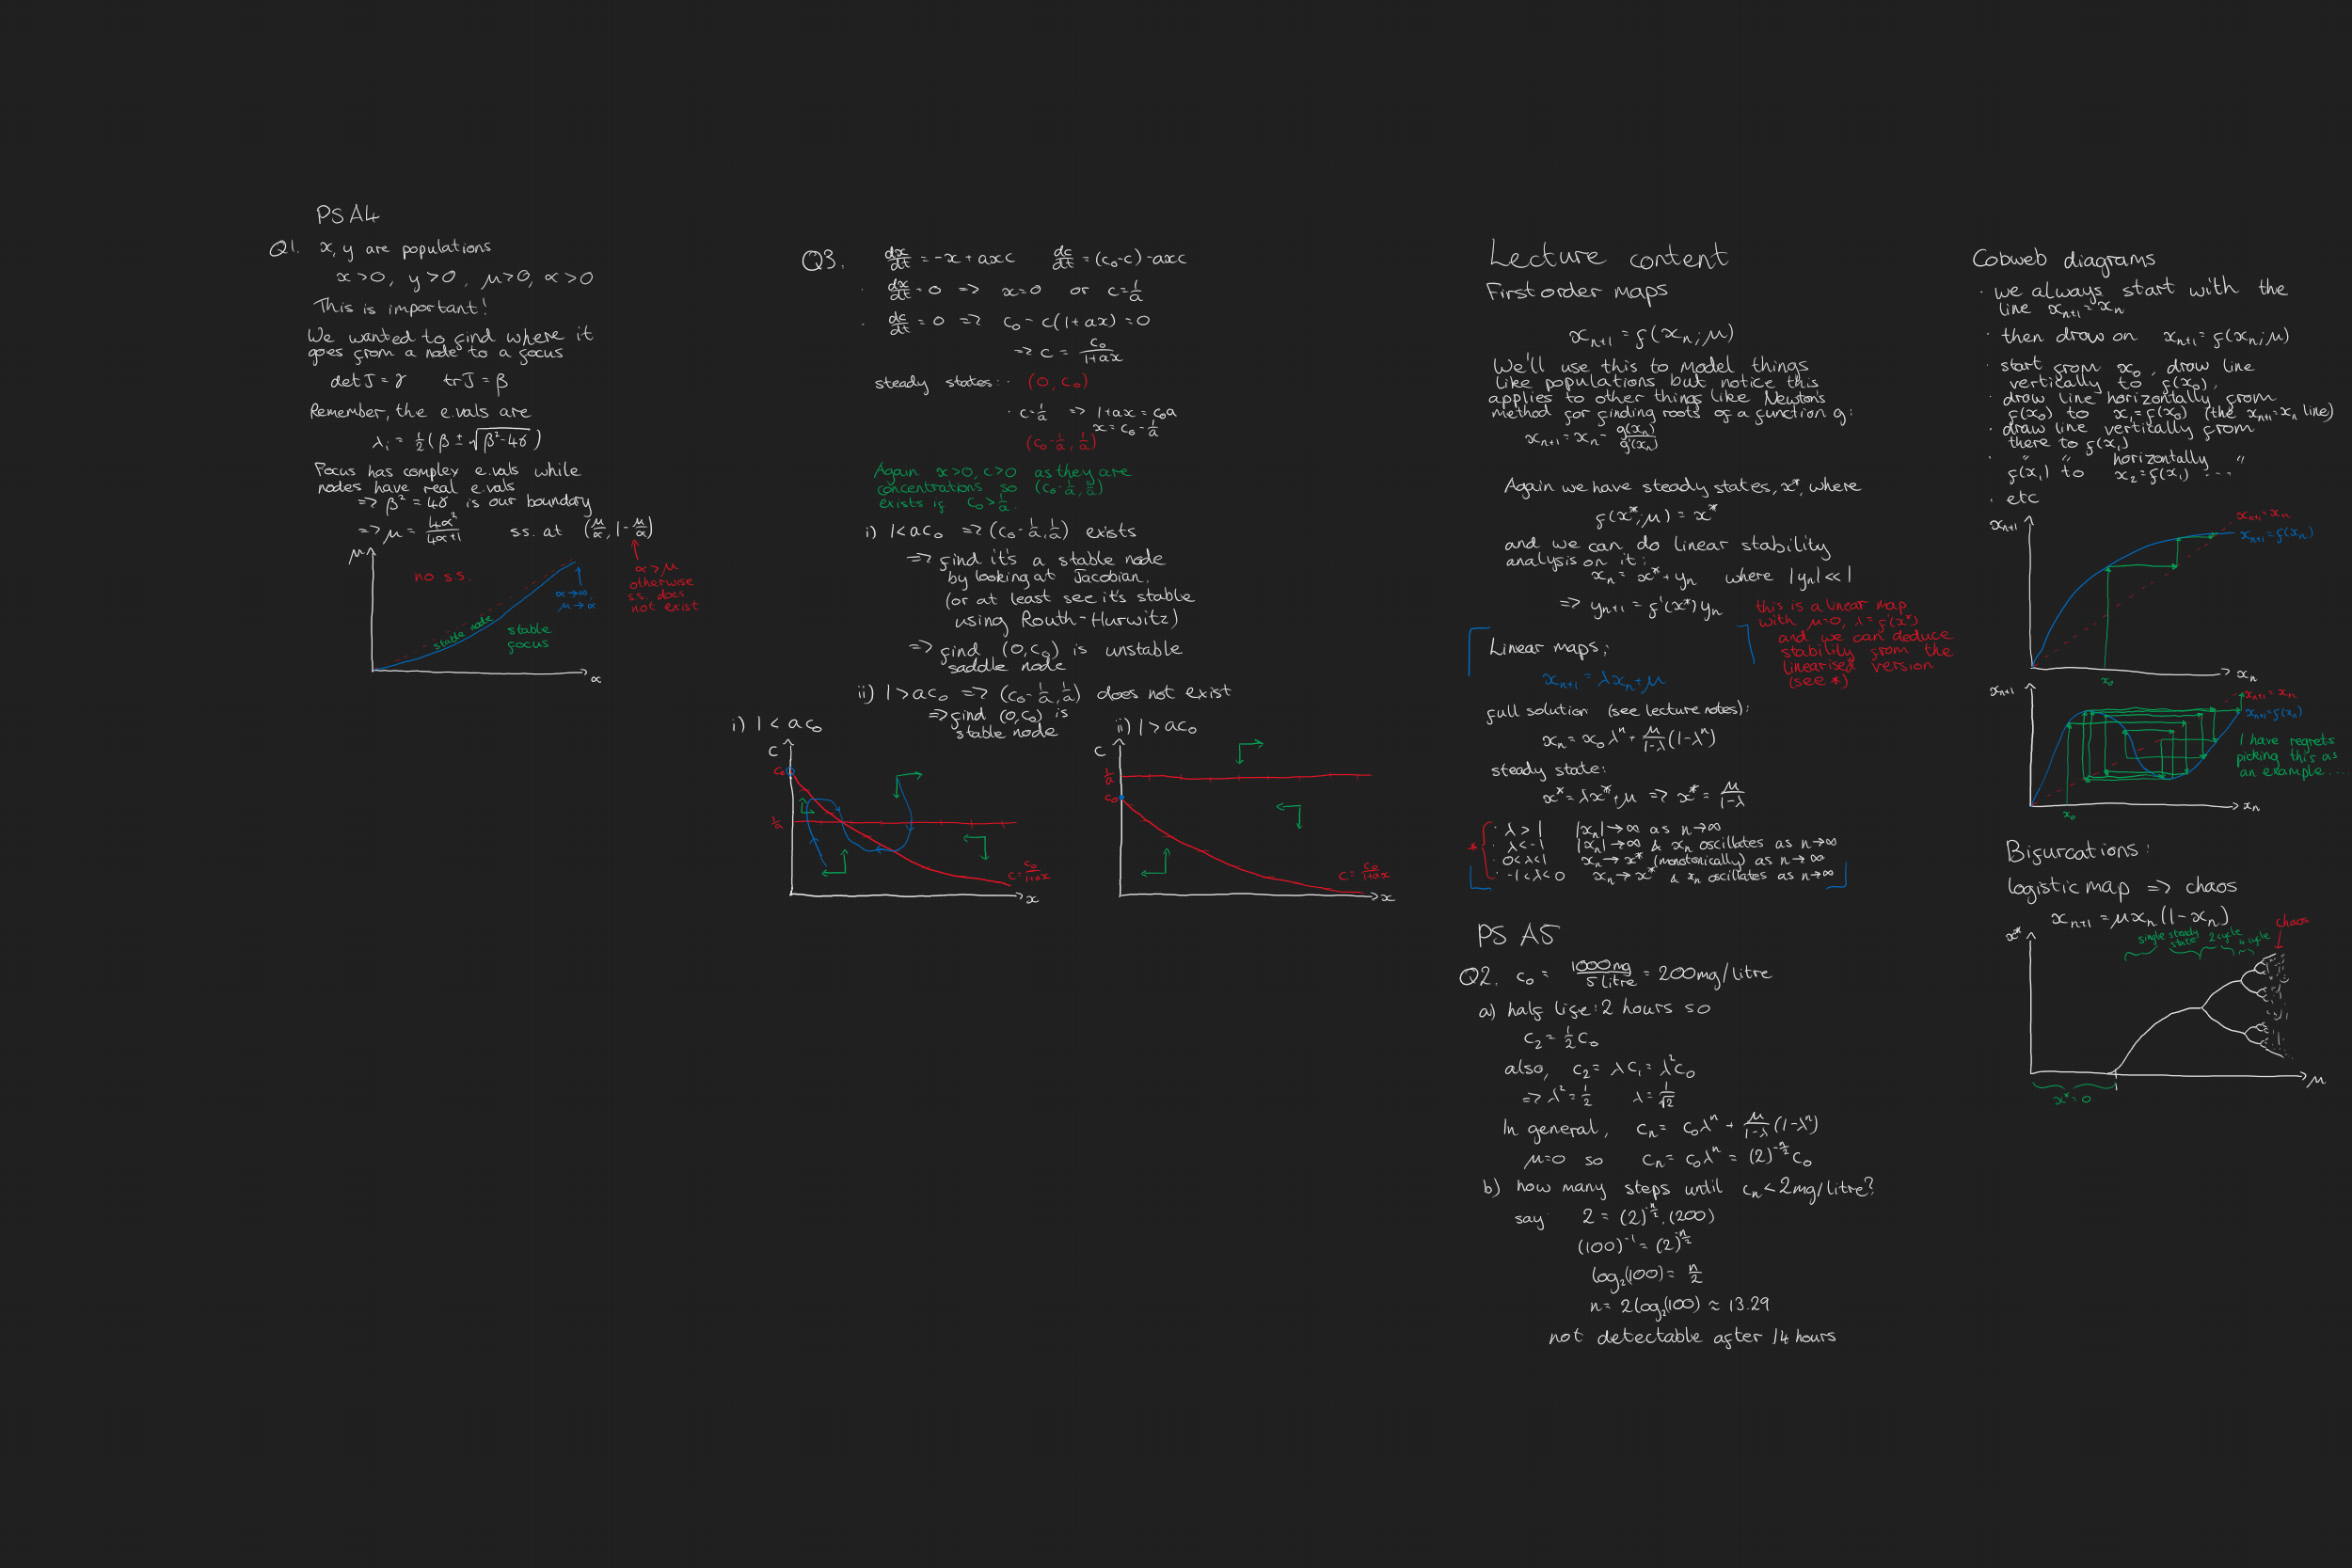 PS A4
Q1. x, y are populations
x>0, y>0, μ>0, α>0
This is important!
We wanted to find where it
goes from a node to a focus
det J = γ   tr J = β
Remember, the e.vals are
λᵢ = ½(β ± √(β²-4γ))
Focus has complex e.vals while
nodes have real e.vals
=> β² = 4γ is our boundary
=> μ = 4α²/(4α+1)   s.s. at (μ/α, 1-μ/α)
μ
no s.s.
stable node
stable
focus
α→∞,
μ→α
α
α>μ
otherwise
s.s. does
not exist
Q3. dx/dt = -x + axc   dc/dt = (c₀-c) - axc
· dx/dt = 0 => x=0 or c=1/a
· dc/dt = 0 => c₀ - c(1+ax) = 0
=> c = c₀/(1+ax)
steady states: · (0, c₀)
· c=1/a => 1+ax = c₀a
x = c₀ - 1/a
(c₀-1/a, 1/a)
Again x>0, c>0 as they are
concentrations so (c₀-1/a, 1/a)
exists if c₀>1/a.
i) 1<ac₀ => (c₀-1/a, 1/a) exists
=> find it's a stable node
by looking at Jacobian.
(or at least see it's stable
using Routh-Hurwitz)
=> find (0,c₀) is unstable
saddle node
ii) 1>ac₀ => (c₀-1/a, 1/a) does not exist
=> find (0,c₀) is
stable node
i) 1<ac₀
c
c₀
1/a
c=c₀/(1+ax)
x
ii) 1>ac₀
c
1/a
c₀
c=c₀/(1+ax)
x
Lecture content
First order maps
xₙ₊₁ = f(xₙ;μ)
We'll use this to model things
like populations but notice this
applies to other things like Newton's
method for finding roots of a function g:
xₙ₊₁ = xₙ - g(xₙ)/g'(xₙ)
Again we have steady states, x*, where
f(x*;μ) = x*
and we can do linear stability
analysis on it:
xₙ = x* + yₙ where |yₙ| << 1
=> yₙ₊₁ = f'(x*)yₙ
this is a linear map
with μ=0, λ=f'(x*)
and we can deduce
stability from the
linearised version
(see *)
Linear maps;
xₙ₊₁ = λxₙ+μ
full solution (see lecture notes):
xₙ = x₀λⁿ + μ/(1-λ) (1-λⁿ)
steady state:
x* = λx*+μ => x* = μ/(1-λ)
*
· λ>1   |xₙ|→∞ as n→∞
· λ<-1   |xₙ|→∞ & xₙ oscillates as n→∞
· 0<λ<1   xₙ→x* (monotonically) as n→∞
· -1<λ<0   xₙ→x* & xₙ oscillates as n→∞
PS A5
Q2. c₀ = 1000mg/5 litre = 200mg/litre
a) half life: 2 hours so
c₂ = ½c₀
also, c₂ = λc₁ = λ²c₀
=> λ² = ½   λ = 1/√2
In general, cₙ = c₀λⁿ + μ/(1-λ) (1-λⁿ)
μ=0 so cₙ = c₀λⁿ = (2)^(-n/2) c₀
b) how many steps until cₙ<2mg/litre?
say 2 = (2)^(-n/2).(200)
(100)⁻¹ = (2)^(-n/2)
log₂(100) = n/2
n = 2log₂(100) ≈ 13.29
not detectable after 14 hours
Cobweb diagrams
· we always start with the
line xₙ₊₁=xₙ
· then draw on xₙ₊₁ = f(xₙ;μ)
· start from x₀, draw line
vertically to f(x₀),
· draw line horizontally from
f(x₀) to x₁=f(x₀) (the xₙ₊₁=xₙ line)
· draw line vertically from
there to f(x₁)
· " " horizontally "
f(x₁) to x₂=f(x₁) ....
· etc
xₙ₊₁
xₙ₊₁=xₙ
xₙ₊₁=f(xₙ)
x₀
xₙ
xₙ₊₁
xₙ₊₁=xₙ
xₙ₊₁=f(xₙ)
I have regrets
picking this as
an example....
x₀
xₙ
Bifurcations:
logistic map => chaos
xₙ₊₁ = μxₙ(1-xₙ)
x*
single steady
state
2 cycle
4 cycle
chaos
x*=0
1
μ